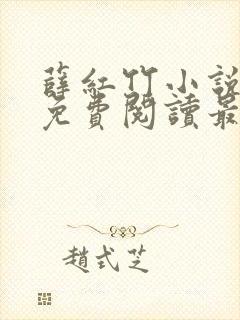 薛紅竹小說
免費閱讀最
趙式芝